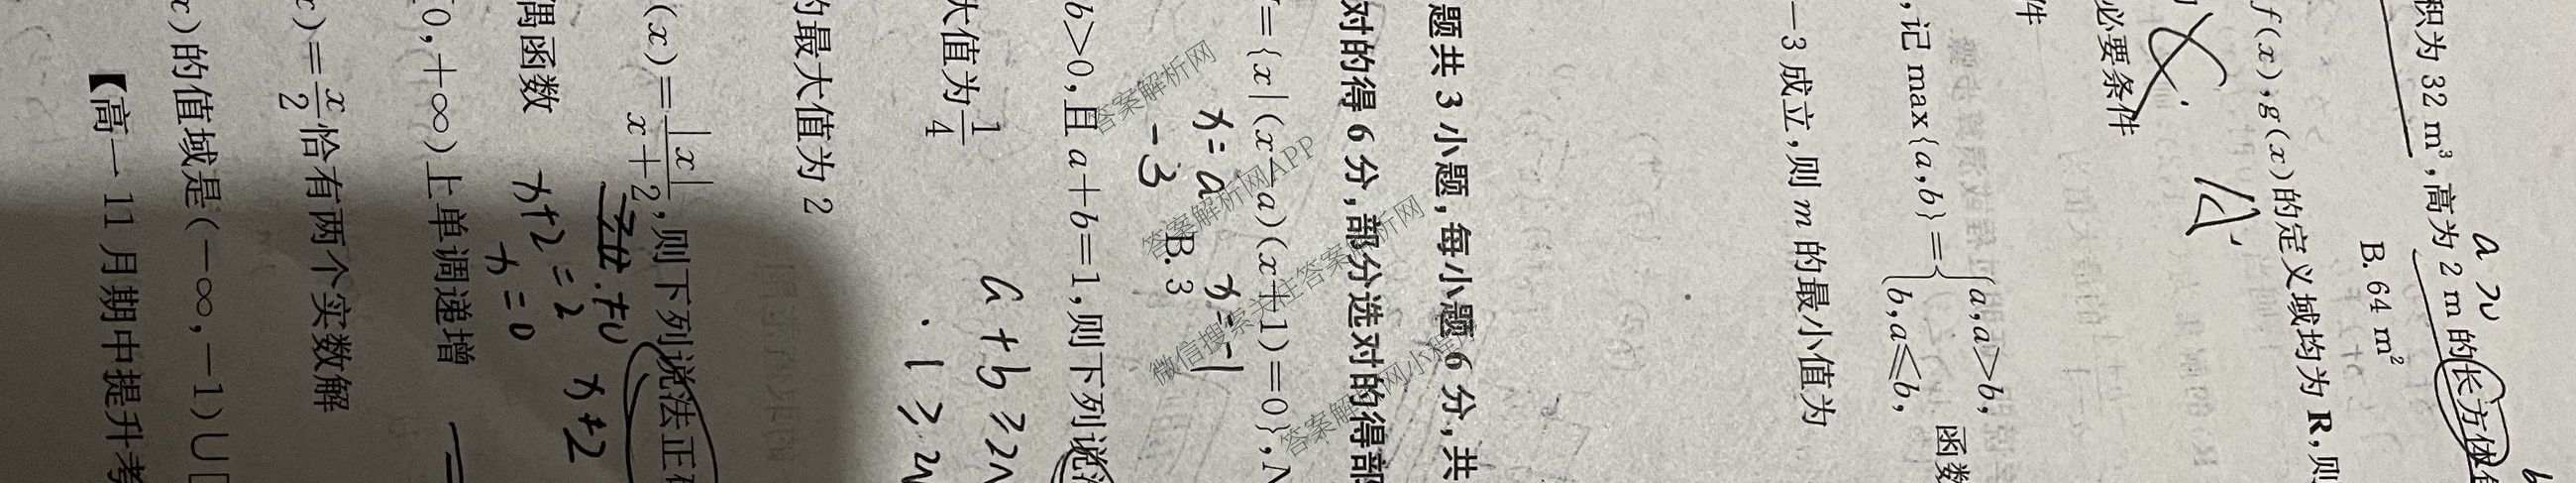 积为 32 m³,高为 2 m的长方体
B. 64 m²
f(x),g(x)的定义域均为 R,则
必要条件
件
,记 max{a,b}={a,a>b,
b,a≤b,
函数
-3成立,则 m 的最小值为
题共 3 小题,每小题 6 分,共
对的得 6 分,部分选对的得部
={x|(x-a)(x+1)=0},N
x=a
x=-1
-3
B. 3
b>0,且 a+b=1,则下列说
a+b≥2
大值为1/4
·1≥2
的最大值为 2
(x)=|x|/x+2,则下列说法正
x+2
偶函数
x+2=2
x=0
[0,+∞)上单调递增
x)=x/2恰有两个实数解
x)的值域是(-∞,-1)∪[
【高一 11 月期中提升考
答案解析网
答案解析网APP
微信搜索关注答案解析网
答案解析网小程序